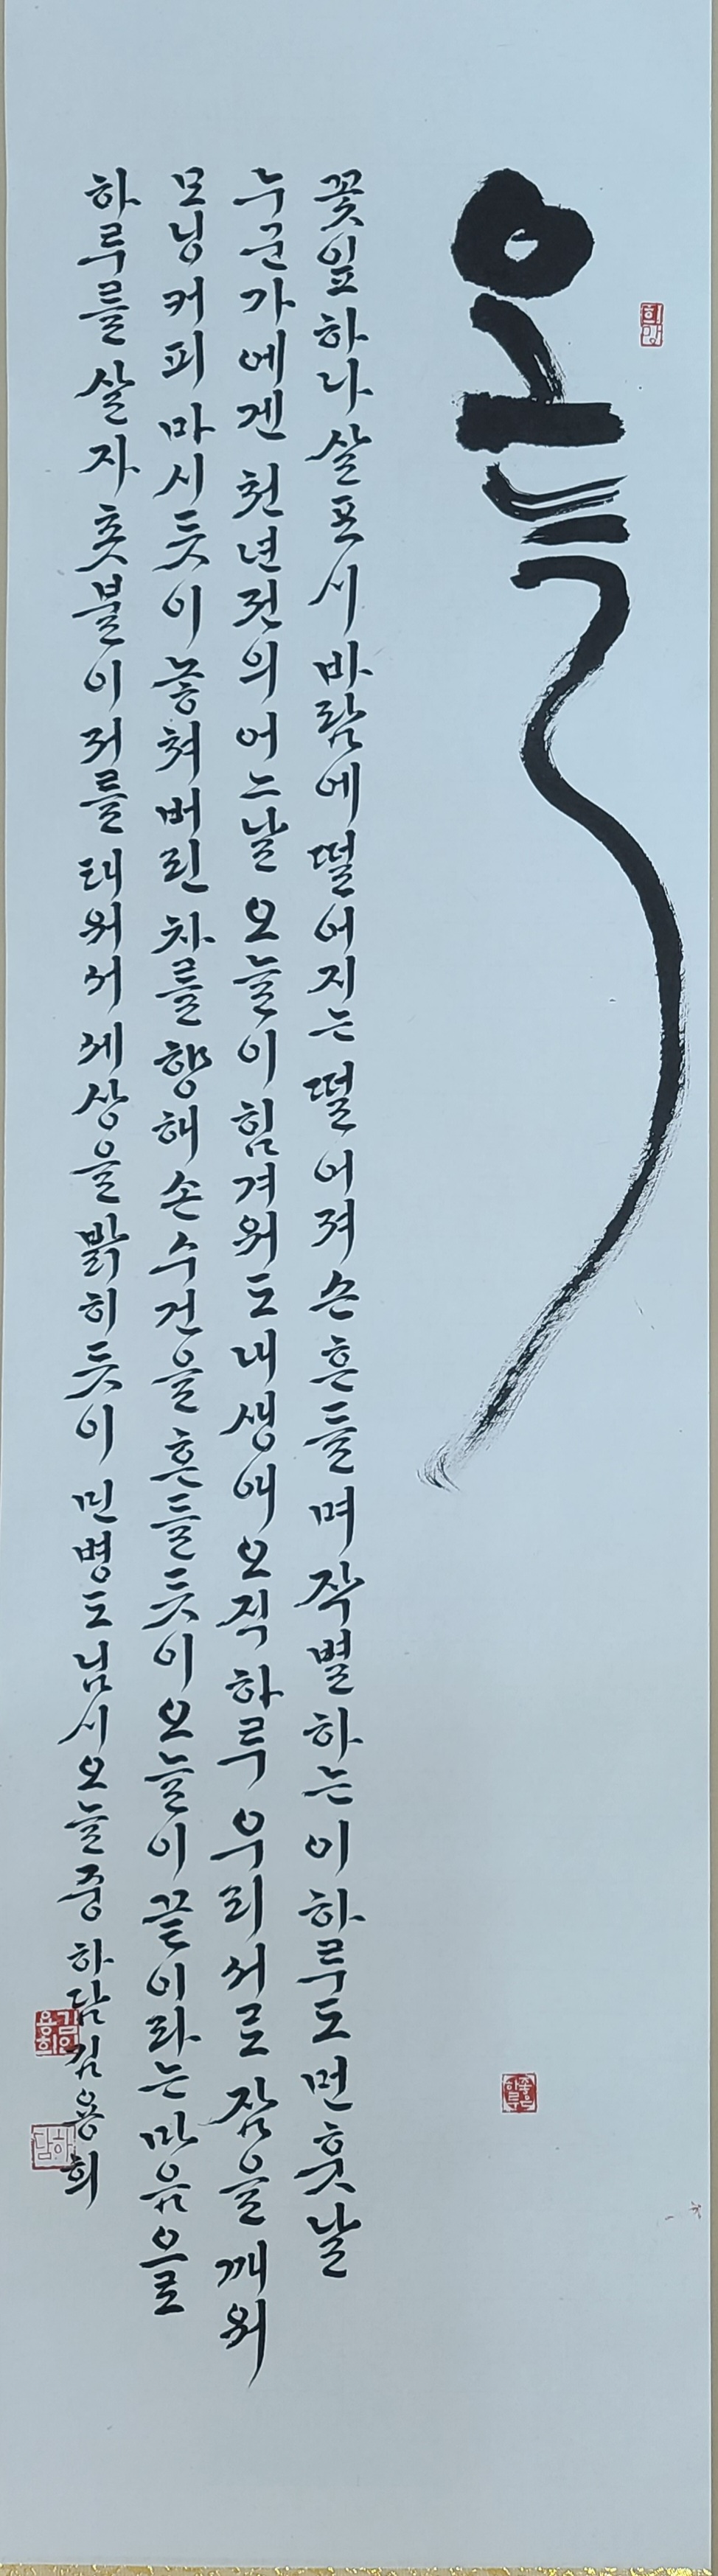 오늘
꽃잎 하나 살포시 바람에 떨어지는 떨어져 손 흔들며 작별하는 이 하루도 먼 훗날
누군가에겐 천년전의 어느날 오늘이 힘겨워도 내 생애 오직 하루 우리 서로 잠을 깨워
모닝커피 마시듯이 놓쳐버린 차를 향해 손수건을 흔들듯이 오늘이 끝이라는 마음으로
하루를 살자 촛불이 저를 태워서 세상을 밝히듯이 민병도님 시 오늘 중 하담 김용희
희망
김용희인
하담